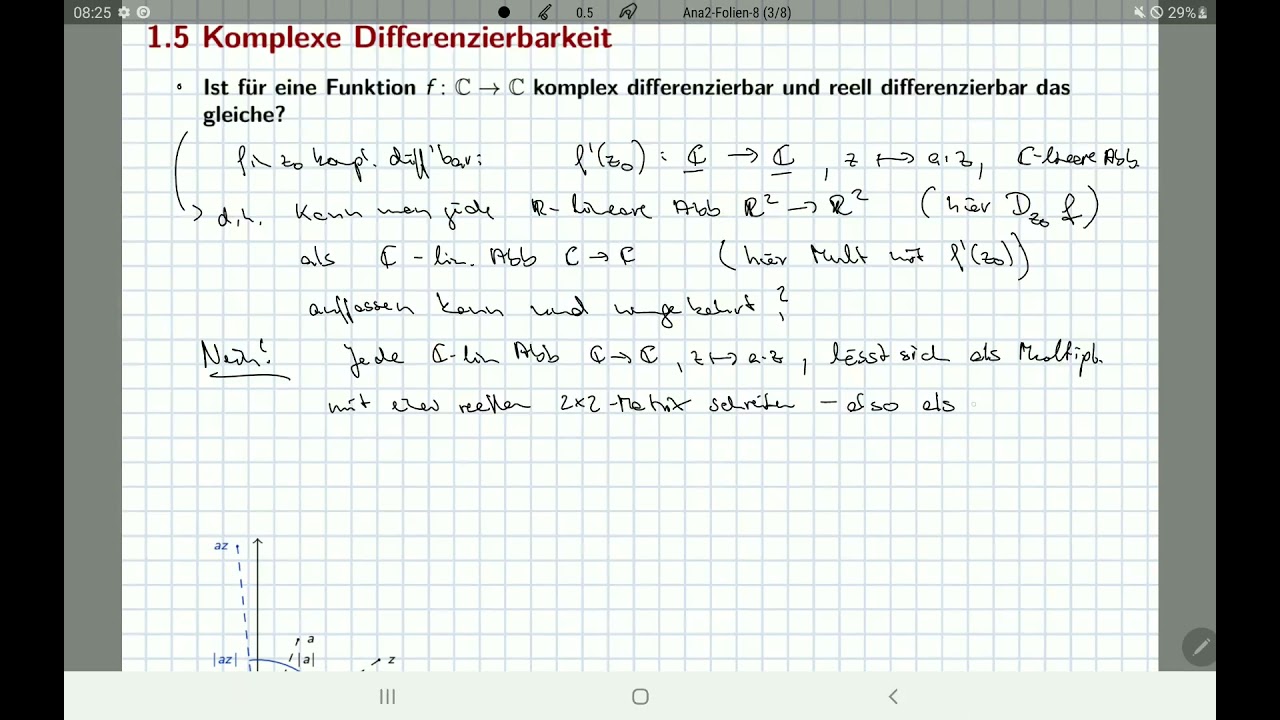 08:25
0.5
Ana2-Folien-8 (3/8)
29%
1.5 Komplexe Differenzierbarkeit
Ist für eine Funktion f : ℂ → ℂ komplex differenzierbar und reell differenzierbar das
gleiche?
f in z₀ kompl. diff'bar: f'(z₀) : ℂ → ℂ, z ↦ a·z, ℂ-lineare Abb
→ d.h. kann man jede ℝ-lineare Abb ℝ² → ℝ² (hier D_z₀ f)
als ℂ-lin. Abb ℂ → ℂ (hier Mult mit f'(z₀))
auffassen kann und umgekehrt?
Nein! Jede ℂ-lin Abb ℂ → ℂ, z ↦ a·z, lässt sich als Multipl.
mit einer reellen 2×2-Matrix schreiben – also als
az
a
|az|
|a|
z